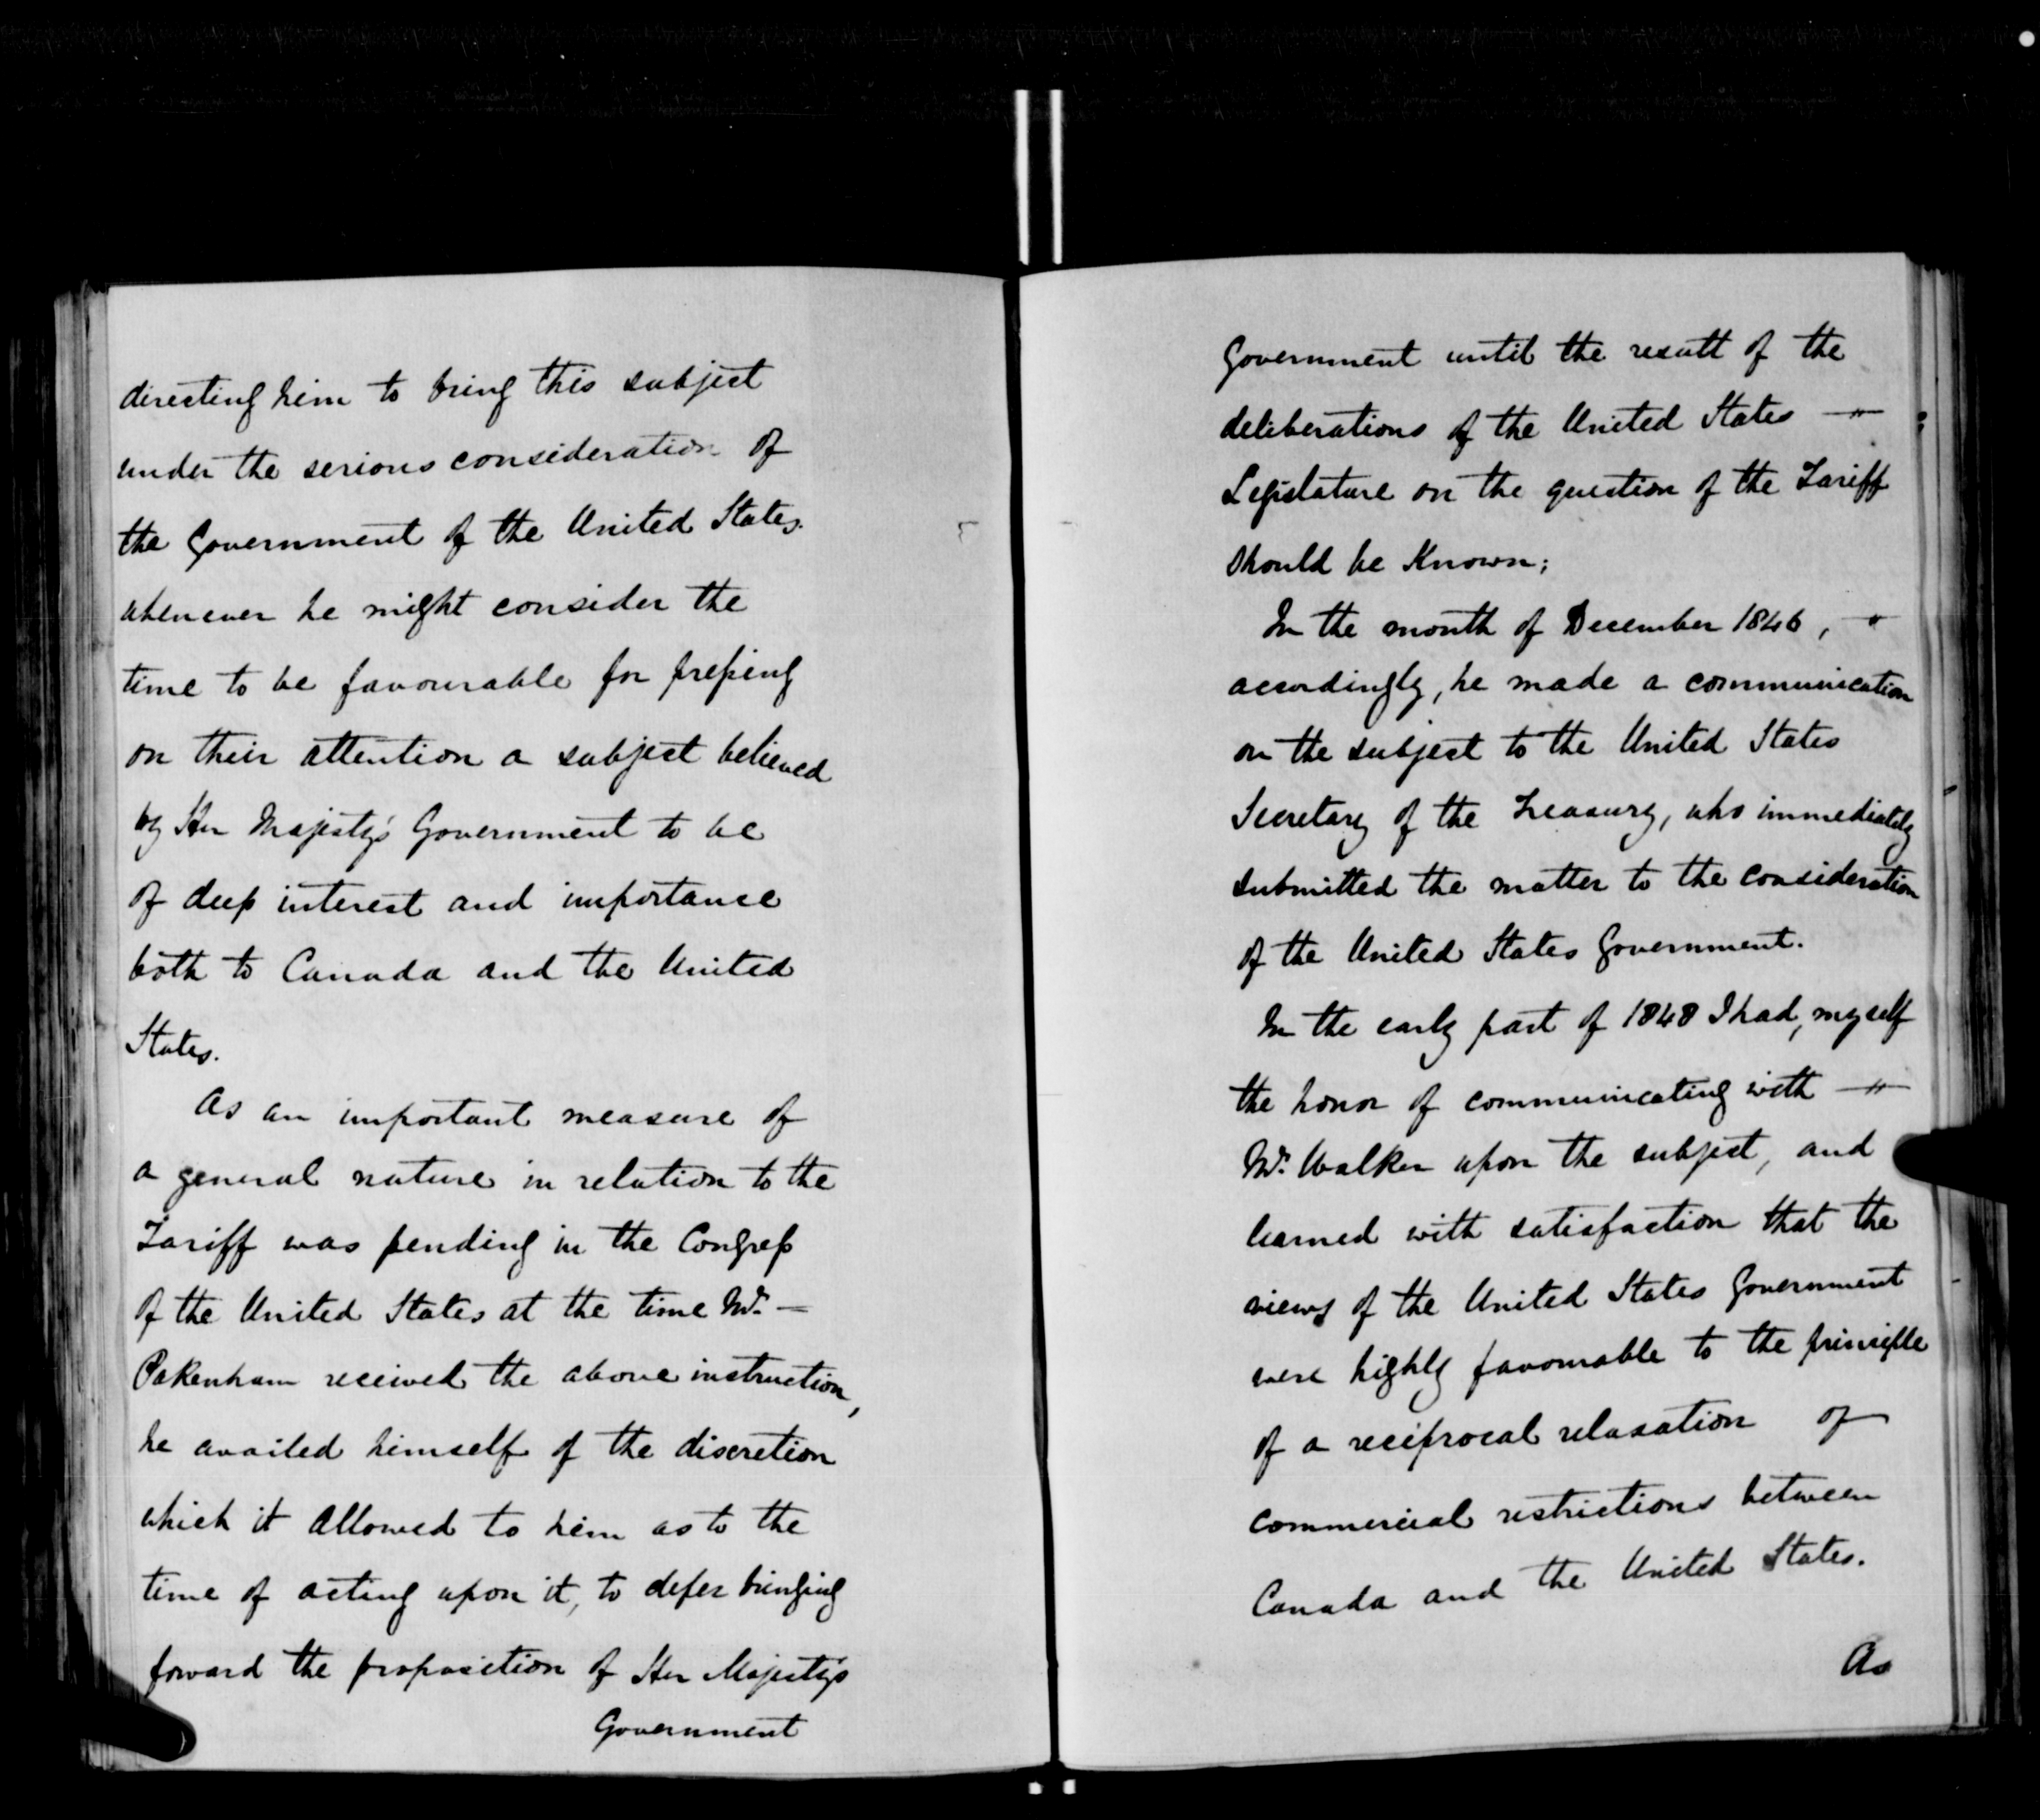 directing him to bring this subject
under the serious consideration of
the Government of the United States.
whenever he might consider the
time to be favourable for preſsing
on their attention a subject believed
by Her Majesty's Government to be
of deep interest and importance
both to Canada and the United
States.
As an important measure of
a general nature in relation to the
Tariff was pending in the Congreſs
of the United States at the time Mr. —
Pakenham received the above instruction,
he availed himself of the discretion
which it allowed to him as to the
time of acting upon it, to defer bringing
forward the proposition of Her Majesty's
Government
Government until the result of the
deliberations of the United States —
Legislature on the question of the Tariff
should be Known;
In the month of December 1846, —
accordingly, he made a communication
on the subject to the United States
Secretary of the Treasury, who immediately
submitted the matter to the consideration
of the United States Government.
In the early part of 1848 I had, myself
the honor of communicating with —
Mr. Walker upon the subject, and
learned with satisfaction that the
views of the United States Government
were highly favourable to the principle
of a reciprocal relaxation of
commercial restrictions between
Canada and the United States.
As